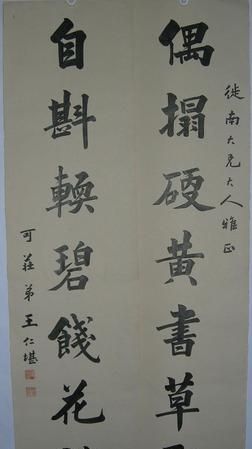 徙南大兄大人雅正
偶搨硬黄書草
自斟輭碧餞花
可莊弟王仁堪